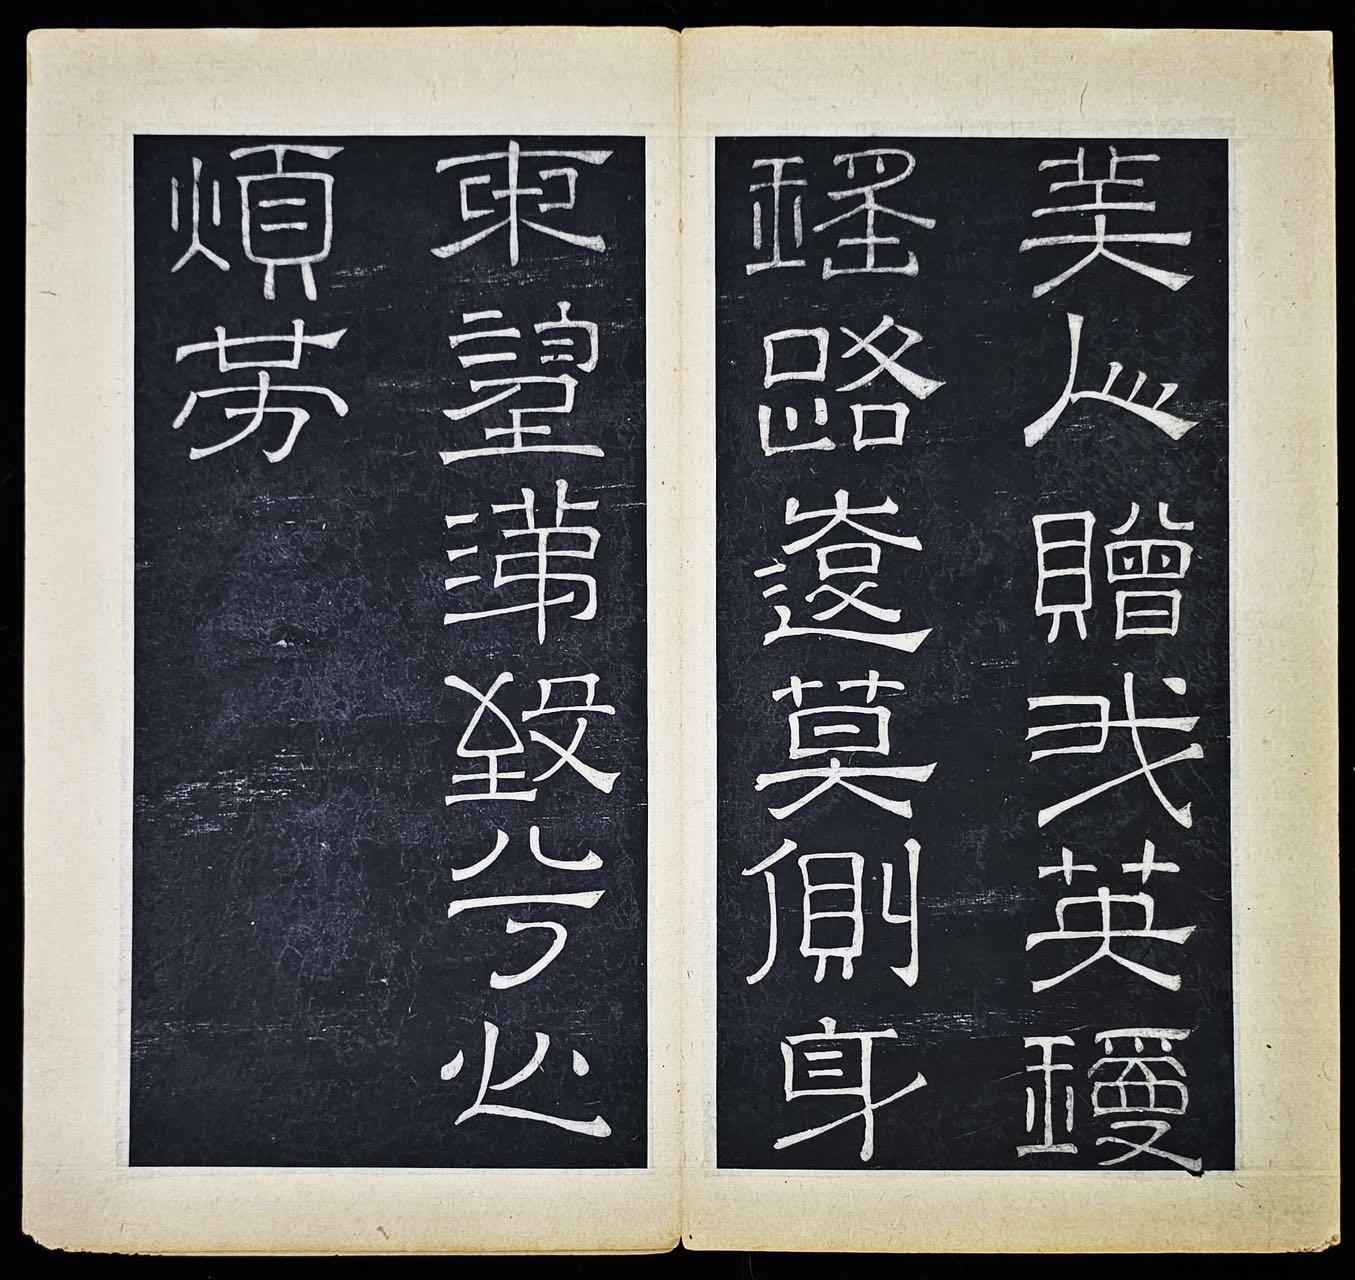 美人贈我英瓊
瑤路遠莫側身
東望涕致兮心
煩勞